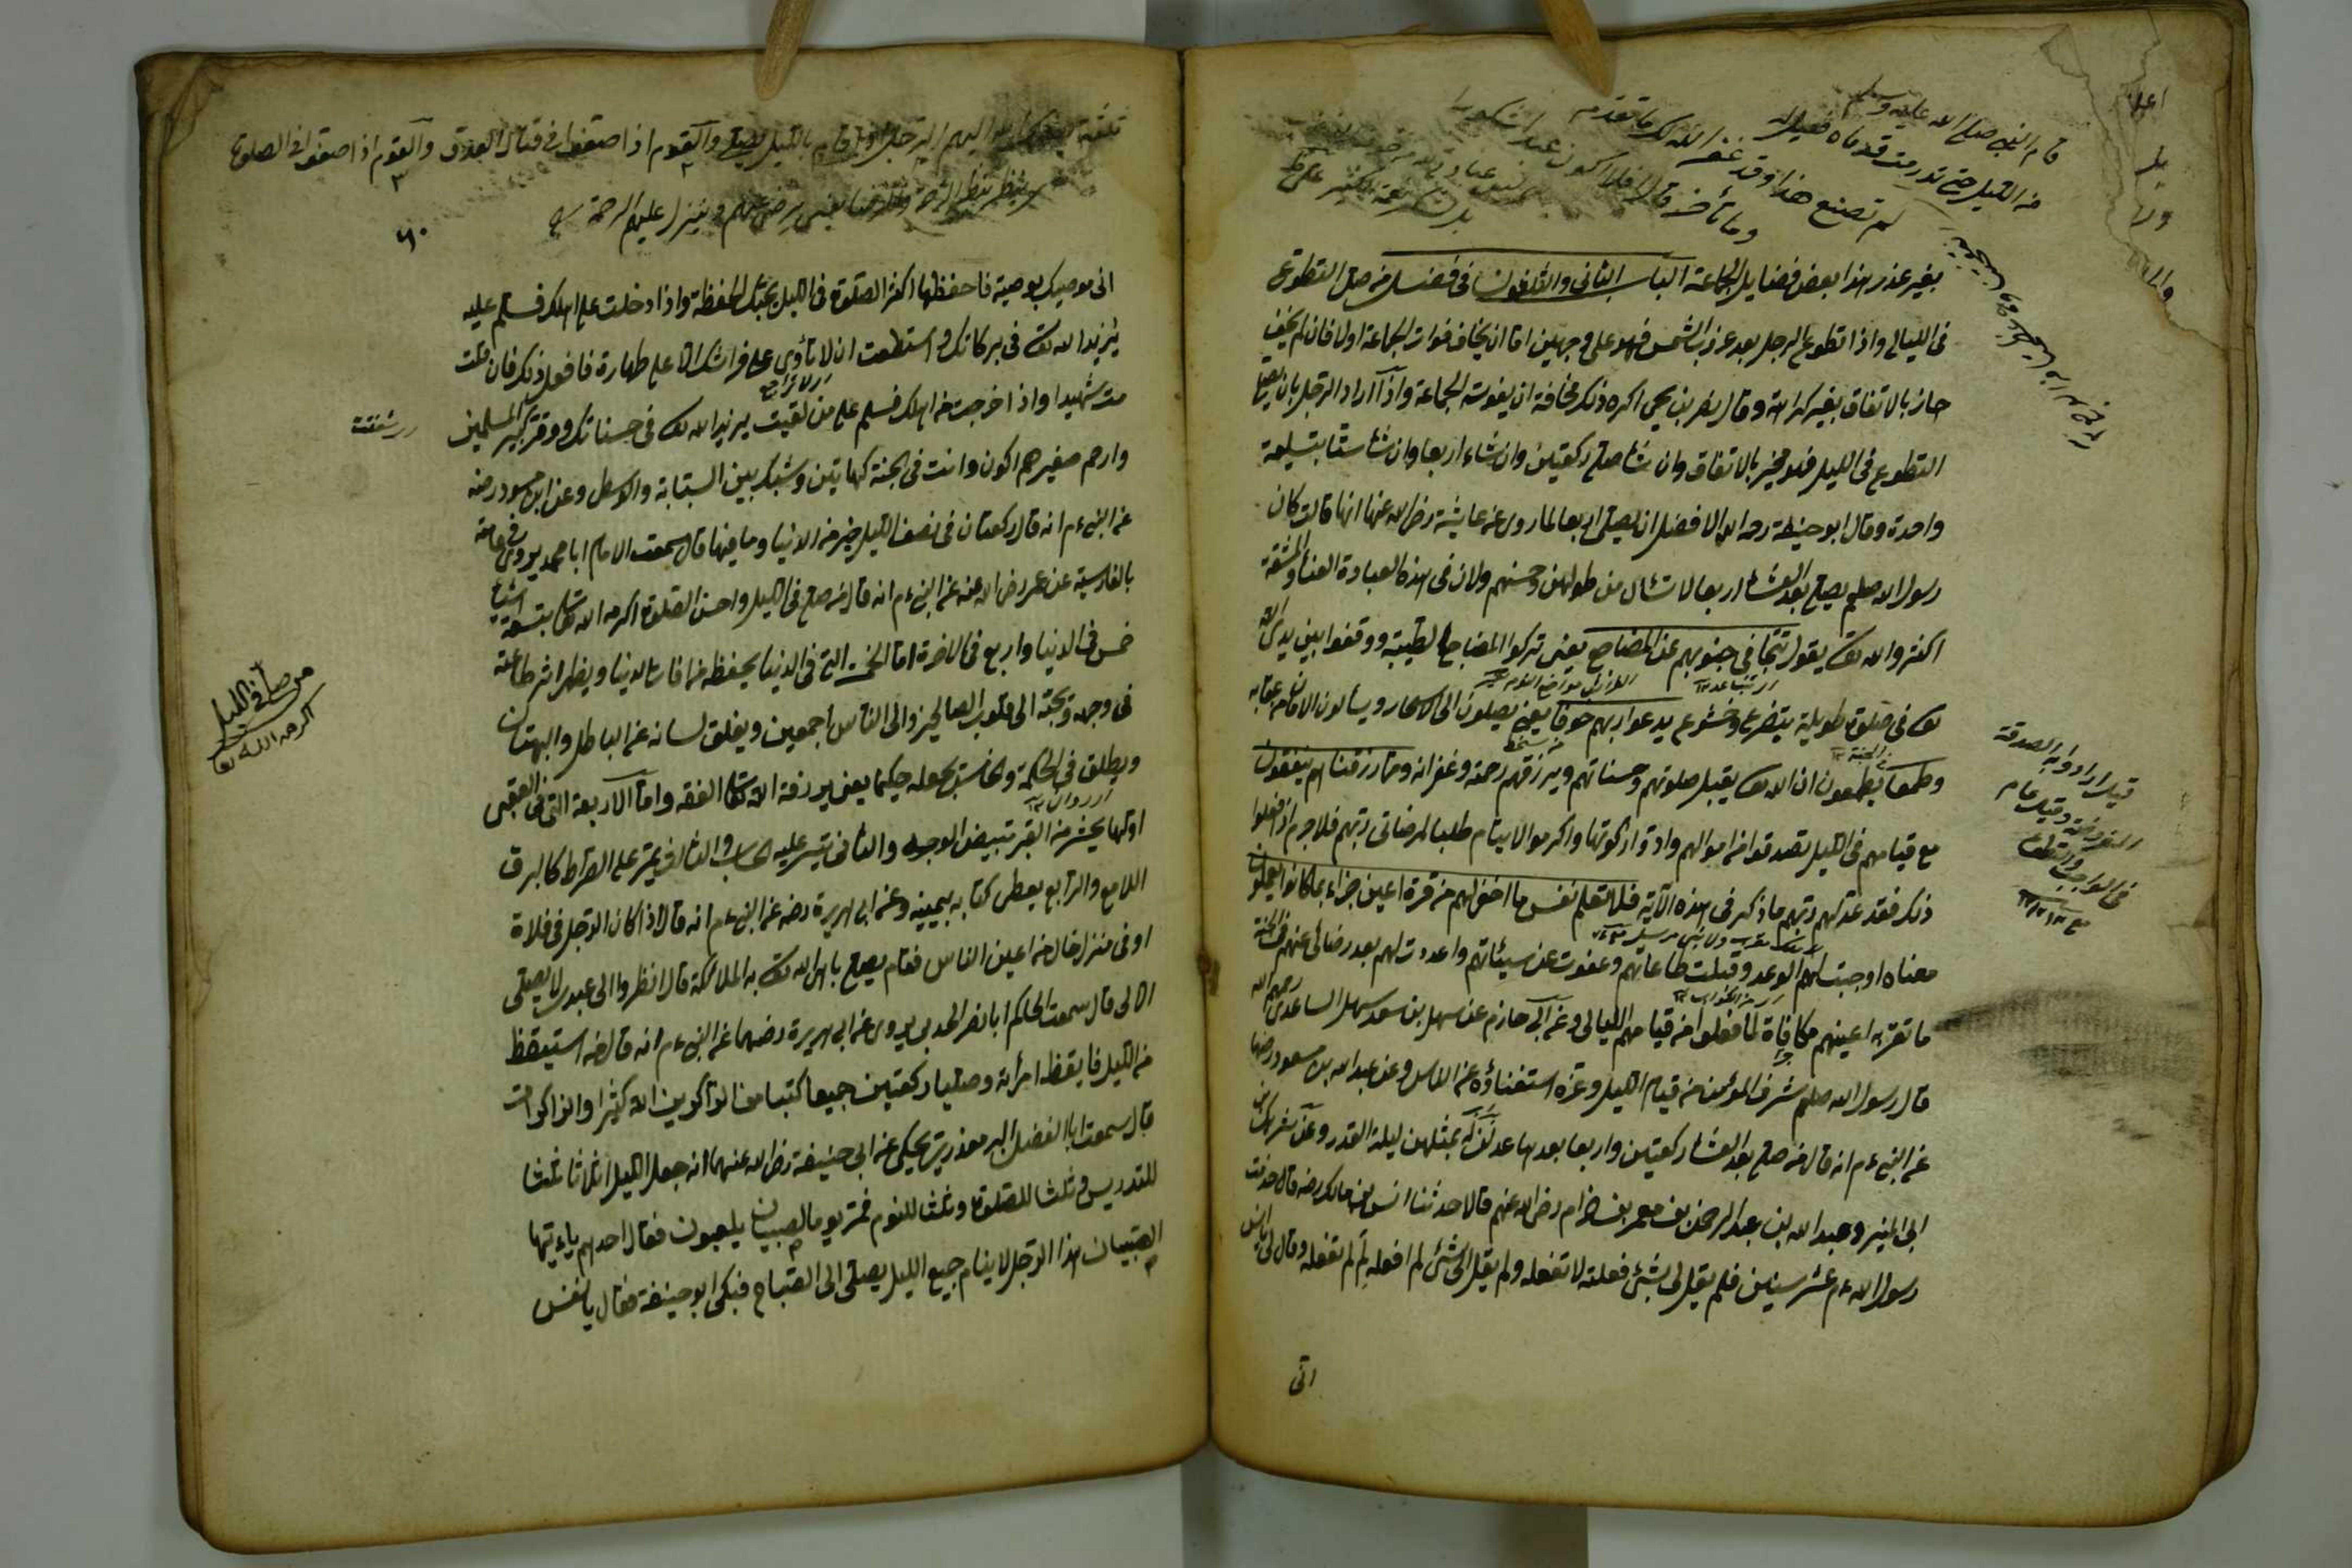 قام النبي صلى الله عليه وسلم
من الليل حتى تورمت قدماه فقيل له
لم تصنع هذا وقد غفر الله لك ما تقدم
وما تأخر قال افلا اكون عبدا شكورا
بغير عذر هذا بعض فضايل الجماعة الباب الثانى والثلثون فى فضل من صلى التطوع
فى الليالى واذا تطوع الرجل بعد غروب الشمس فهو على وجهين اما ان يخاف فوات الجماعة اولا فان لم يخف
جاز بالاتفاق بغير كراهة وقال نصر بن يحيى اكره ذلك مخافة ان يفوت الجماعة واذا اراد الرجل بان يصلى
التطوع فى الليل فهو مخير بالاتفاق وان شاء صلى ركعتين وان شاء اربعا وان شاء ستا بتسليمة
واحدة وقال ابو حنيفة رحمه الله الافضل ان يصلى اربعا لما روى عن عايشة رضى الله عنها انها قالت كان
رسول الله صلعم يصلى بعد العشاء اربعا لا تسأل من طولهن وحسنهن ولان فى هذه العبادة العناء والمشقة
اكثر والله تعالى يقول تتجافى جنوبهم عن المضاجع يعنى تركوا المضاجع الطيبة ووقفوا بين يدى الله
تعالى فى صلوة طويلة بتضرع وخشوع يدعون ربهم خوفا يعنى يصلون الى الاسحار ويسألون الامان من عقابه
وطمعا يطمعون ان الله تعالى يقبل صلوتهم وحسناتهم ويرزقهم رحمته وغفرانه ومما رزقناهم ينفقون
مع قيامهم فى الليل تصدقوا من اموالهم وادوا زكوتها واكرموا الايتام طلبا لمرضاتى ربهم فلا جرم اذ فعلوا
ذلك فقد عد لهم ربهم ما ذكر فى هذه الآية فلا تعلم نفس ما اخفى لهم من قرة اعين جزاء بما كانوا يعملون
معناه اوجبت لهم الوعد وقبلت طاعاتهم وعفوت عن سيئاتهم واعددت لهم بعد رضائى عنهم فى الجنة
ما تقر به اعينهم مكافاة لما فعلوا من قيامهم الليالى وعن ابى حازم عن سهل بن سعد سهل الساعدى رحمهم الله
قال رسول الله صلعم شرف المؤمن من قيام الليل وعزه استغناؤه عن الناس وعن عبد الله بن مسعود رضهما
عن النبى ءم انه قال من صلى بعد العشاء ركعتين واربعا بعدها عدلن بمثلهن ليلة القدر وعن شريك بن
ابى المنير وعبد الله بن عبد الرحمن بن معمر بن حزام رضى الله عنهم قالا حدثنا انس بن مالك رضه قال خدمت
رسول الله ءم عشر سنين فلم يقل لى بشئ فعلته لا تفعله ولم يقل لى شئ لم افعله لم لم تفعله وقال لى يا انس
انى
قيل اراد به الصدقة
المفروضة وقيل عام
فى الواجب والتطوع
ثلثة يضحك الله اليهم الرجل اذا قام بالليل يصلى والقوم اذا صفوا فى قتال العدو والقوم اذا صفوا فى الصلوة
يعنى يرضى عنهم وينزل عليهم الرحمة
٦٠
انى موصيك بوصية فاحفظها اكثر الصلوة فى الليل يحبك الحفظة واذا دخلت على اهلك فسلم عليه
يزيد الله تعالى فى بركاتك وان استطعت ان لا تأوى على فراشك الا على طهارة فافعل ذلك فان مت
مت شهيدا واذا خرجت من اهلك فسلم على من لقيت يزيد الله تعالى فى حسناتك ووقر كبير المسلمين
وارحم صغيرهم اكون وانت فى الجنة كهاتين وشبك بين السبابة والوسطى وعن ابن مسعود رضه
عن النبى ءم انه قال ركعتان فى نصف الليل خير من الدنيا وما فيها قال سمعت الامام ابا محمد يروى
بالفارسية عن عمر رضى الله عنه عن النبى ءم انه قال من صلى فى الليل واحسن الصلوة اكرمه الله تعالى بتسعة اشياء
خمس فى الدنيا واربع فى الاخرة اما الخمسة التى فى الدنيا يحفظه من افات الدنيا ويظهر اثر طاعته
فى وجهه ومحبته الى قلوب الصالحين والى الناس اجمعين ويغلق لسانه عن الباطل والبهتان
ويطلق فى الحكمة والخامس يجعله حكيما يعنى يرزقه الله تعالى الفقه واما الاربعة التى فى العقبى
اولها يحشر من القبر مبيض الوجه والثانى تيسر عليه الحساب والثالث يمر على الصراط كالبرق
اللامع والرابع يعطى كتابه بيمينه وعن ابى هريرة رضه عن النبى ءم انه قال اذا كان الرجل فى فلاة
او فى منزل خال من اعين الناس فقام يصلى باهى الله تعالى به الملائكة قال انظروا الى عبدى لا يصلى
الا لى قال سمعت الحاكم ابا نصر الحدبى يروى عن ابى هريرة رضهما عن النبى ءم انه قال من استيقظ
من الليل فايقظ امرأته وصليا ركعتين جميعا كتبا من الذاكرين الله كثيرا والذاكرات
قال سمعت ابا الفضل البرمغذرى يحكى عن ابى حنيفة رضى الله عنهما انه جعل الليل اثلاثا ثلثا
للتدريس وثلثا للصلوة وثلثا للنوم فمر يوما بصبيان يلعبون فقال احدهم يا ءيتها
الصبيان هذا الرجل لا ينام جميع الليل يصلى الى الصباح فبكى ابو حنيفة فقال يا نفس
من صلى فى الليل
اكرمه الله تعالى